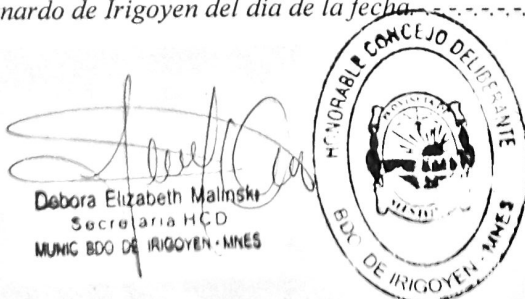 nardo de Irigoyen del día de la fecha.-.-.-.-.-.-.-
Debora Elizabeth Malinski
Secretaria HCD
MUNIC BDO DE IRIGOYEN - MNES
HONORABLE CONCEJO DELIBERANTE
BDO DE IRIGOYEN - MNES